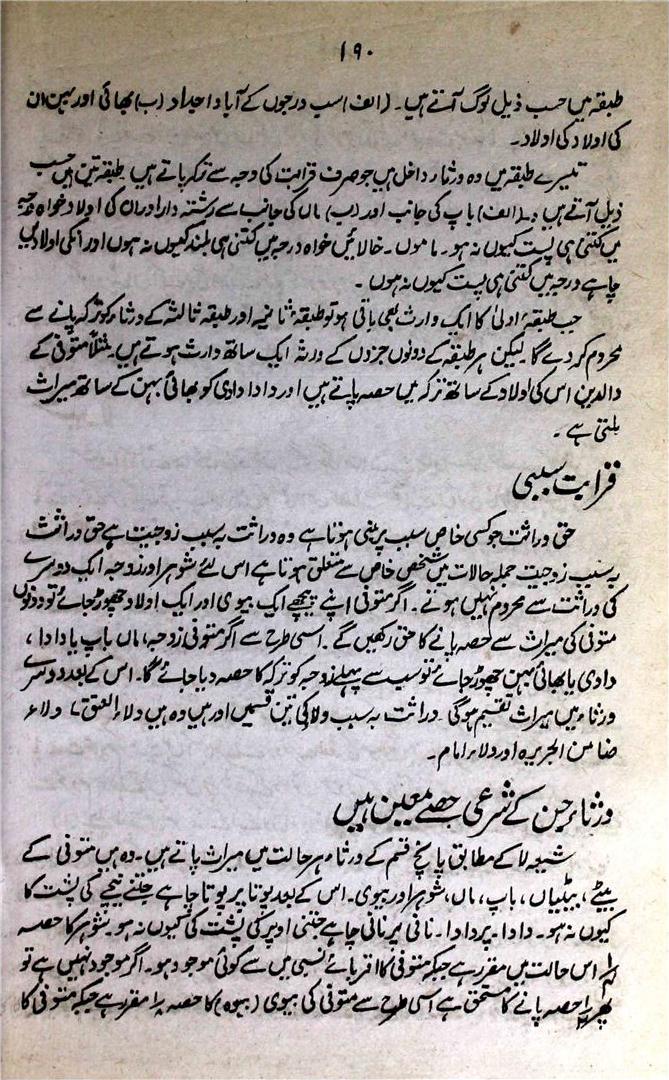 ۱۹۰
طبقہ میں حسب ذیل لوگ آتے ہیں۔ (الف) سب درجوں کے آبا و اجداد (ب) بھائی اور بہن ان
کی اولاد کی اولاد۔
تیسرے طبقہ میں وہ ورثاء داخل ہیں جو صرف قرابت کی وجہ سے ترکہ پاتے ہیں۔ طبقہ تین میں حسب
ذیل آتے ہیں :۔ (الف) باپ کی جانب اور (ب) ماں کی جانب سے رشتہ دار اور ان کی اولاد خواہ درجہ
میں کتنی ہی پست کیوں نہ ہو۔ ماموں۔ خالائیں خواہ درجہ میں کتنی ہی بلند کیوں نہ ہوں اور انکی اولادیں
چاہے درجہ میں کتنی ہی پست کیوں نہ ہوں ۔
جب طبقۂ اولیٰ کا ایک وارث بھی باقی ہو تو طبقۂ ثانیہ اور طبقۂ ثالثہ کے ورثاء کو ترکہ پانے سے
محروم کر دے گا لیکن ہر طبقہ کے دونوں جزوں کے ورثہ ایک ساتھ وارث ہوتے ہیں۔ مثلاً متوفی کے
والدین اس کی اولاد کے ساتھ ترکہ میں حصہ پاتے ہیں اور دادا دادی کو بھائی بہن کے ساتھ میراث
ملتی ہے ۔
قرابت سببی
حق وراثت جو کسی خاص سبب پر مبنی ہوتا ہے وہ وراثت بہ سبب زوجیت ہے حق وراثت
بہ سبب زوجیت جملہ حالات میں شخص خاص سے متعلق ہوتا ہے اس لئے شوہر اور زوجہ ایک دوسرے
کی وراثت سے محروم نہیں ہوتے ۔ اگر متوفی اپنے پیچھے ایک بیوی اور ایک اولاد چھوڑ جائے تو دونوں
متوفی کی میراث سے حصہ پانے کا حق رکھیں گے ۔ اسی طرح سے اگر متوفی زوجہ، ماں باپ یا دادا ،
دادی یا بھائی بہن چھوڑ جائے تو سب سے پہلے زوجہ کو ترکہ کا حصہ دیا جائے گا۔ اس کے بعد دوسرے
ورثاء میں میراث تقسیم ہوگی۔ وراثت بہ سبب ولا کی تین قسمیں اور ہیں وہ ہیں ولاء العتق ، ولاء
ضامن الجریرہ اور ولاء امام ۔
ورثاء جن کے شرعی حصے معین ہیں
شیعہ لا کے مطابق پانچ قسم کے ورثاء ہر حالت میں میراث پاتے ہیں۔ وہ ہیں متوفی کے
بیٹے ، بیٹیاں ، باپ، ماں، شوہر اور بیوی۔ اس کے بعد پوتا پر پوتا چاہے جتنے نیچے کی پشت کا
کیوں نہ ہو۔ دادا۔ پردادا۔ نانی پر نانی چاہے جتنی اوپر کی پشت کی کیوں نہ ہو۔ شوہر کا حصہ
اس حالت میں مقرر ہے جبکہ متوفی کا اقربائے نسبی میں سے کوئی موجود ہو۔ اگر موجود نہیں ہے تو
پھر حصہ پانے کا مستحق ہے اسی طرح سے متوفی کی بیوی (بیوہ) کا حصہ مقرر ہے جبکہ متوفی کا